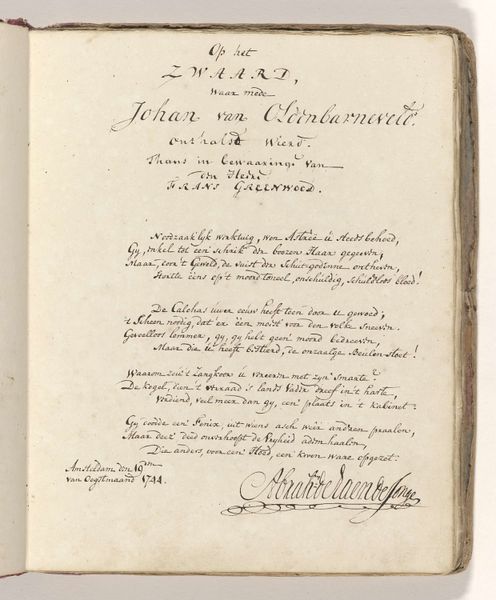 Op het
ZWAARD,
waar mede
Johan van Oldenbarneveld.
onthalst wierd.
Thans in bewaaring van
den Heere
FRANS GREENWOOD.
Noodzaak'lyk werktuig, van Astréé u steeds behoed,
Gy, enkel tot een schrik der boozen Haar gegeeven,
Maar, door 't Geweld, de vuist der Schutgodinne ontheven,
Stortte ééns op 't moordtoneel onschuldig, schuldloos bloed!
De Calchas uwer eeuw heeft toen door u gewoed;
't Scheen nodig, dat er één moest voor den volke sneeven.
Gevoelloos lemmer, gy, gy hebt geen' moord bedreeven,
Maar die u heeft bestierd, de onzaalge Beulen-stoet!
Waarom zou 't zangkoor u vereeren met zyn' smarte?
De kogel, dien 't verraad 's lands Vader dreef in 't harte,
Verdiend, veel meer dan gy, een' plaats in 't kabinet:
Gy doodde een' Fenix, uit wiens asch weer andren praalen,
Maar deez' deed onverhoopt de Vryheid ademhaalen,
Die anders, voor een' Hoed, een kroon ware opgezet.
Amsterdam den 16den
van Oogstmaand 1744.
Abrah: de Haen de Jonge